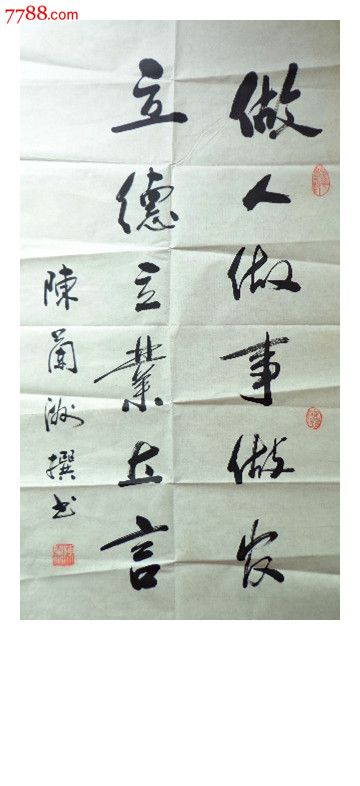 7788.com
做人做事做
立德立業立言
陳蘭洲撰书